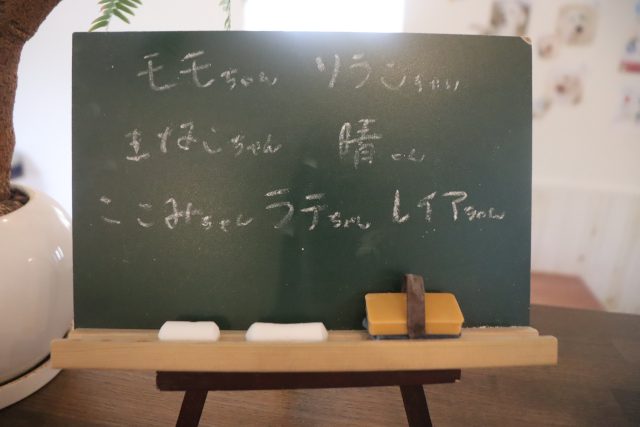 モモちゃん ソランちゃん
まなこちゃん 晴くん
ここみちゃん ラテちゃん レイアちゃん